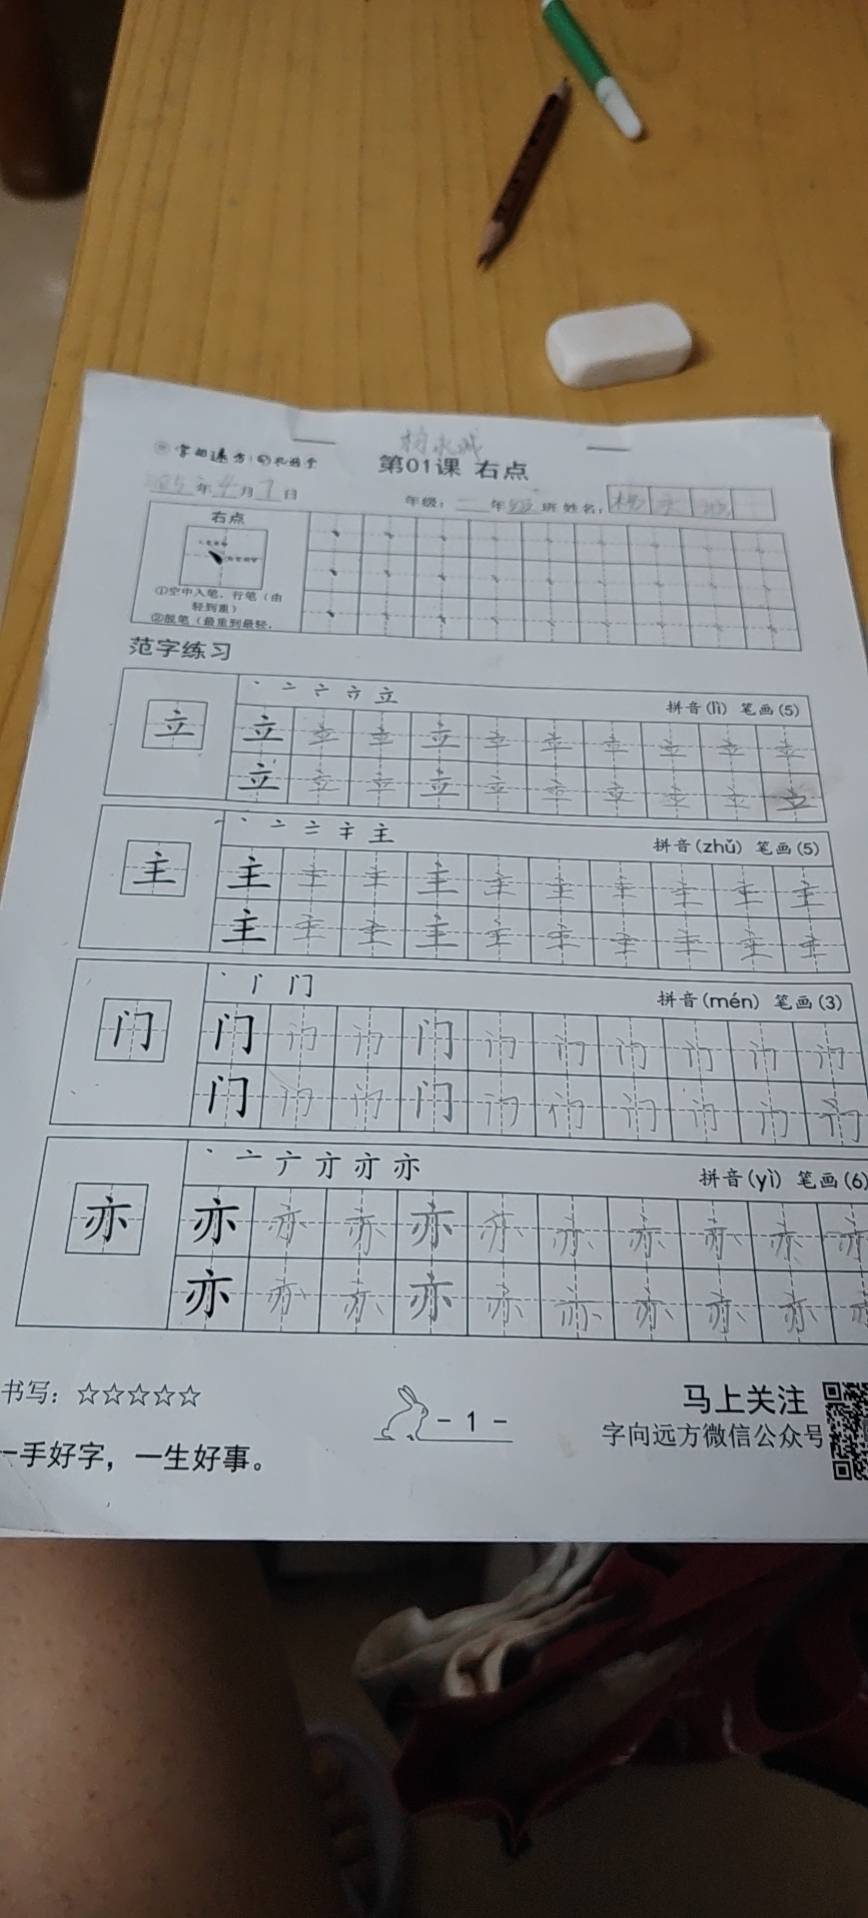 第01课 右点
年 4月7日
年级：二年级 班 姓名：杨
右点
①空中入笔，行笔（由
轻到重）
②顿笔（最重到最轻.
范字练习
丶 亠 立
拼音(lì) 笔画(5)
立 立 立 立 立 立 立 立 立 立 立
立 立 立 立 立 立 立 立 立 立
丶 亠 主
拼音(zhǔ) 笔画(5)
主 主 主 主 主 主 主 主 主 主 主
主 主 主 主 主 主 主 主 主 主
丶 门
拼音(mén) 笔画(3)
门 门 门 门 门 门 门 门 门 门 门
门 门 门 门 门 门 门 门 门 门
丶 亠 亦
拼音(yì) 笔画(6)
亦 亦 亦 亦 亦 亦 亦 亦 亦 亦 亦
亦 亦 亦 亦 亦 亦 亦 亦 亦 亦
书写：☆☆☆☆☆
- 1 -
马上关注
字向远方微信公众号
一手好字，一生好事。